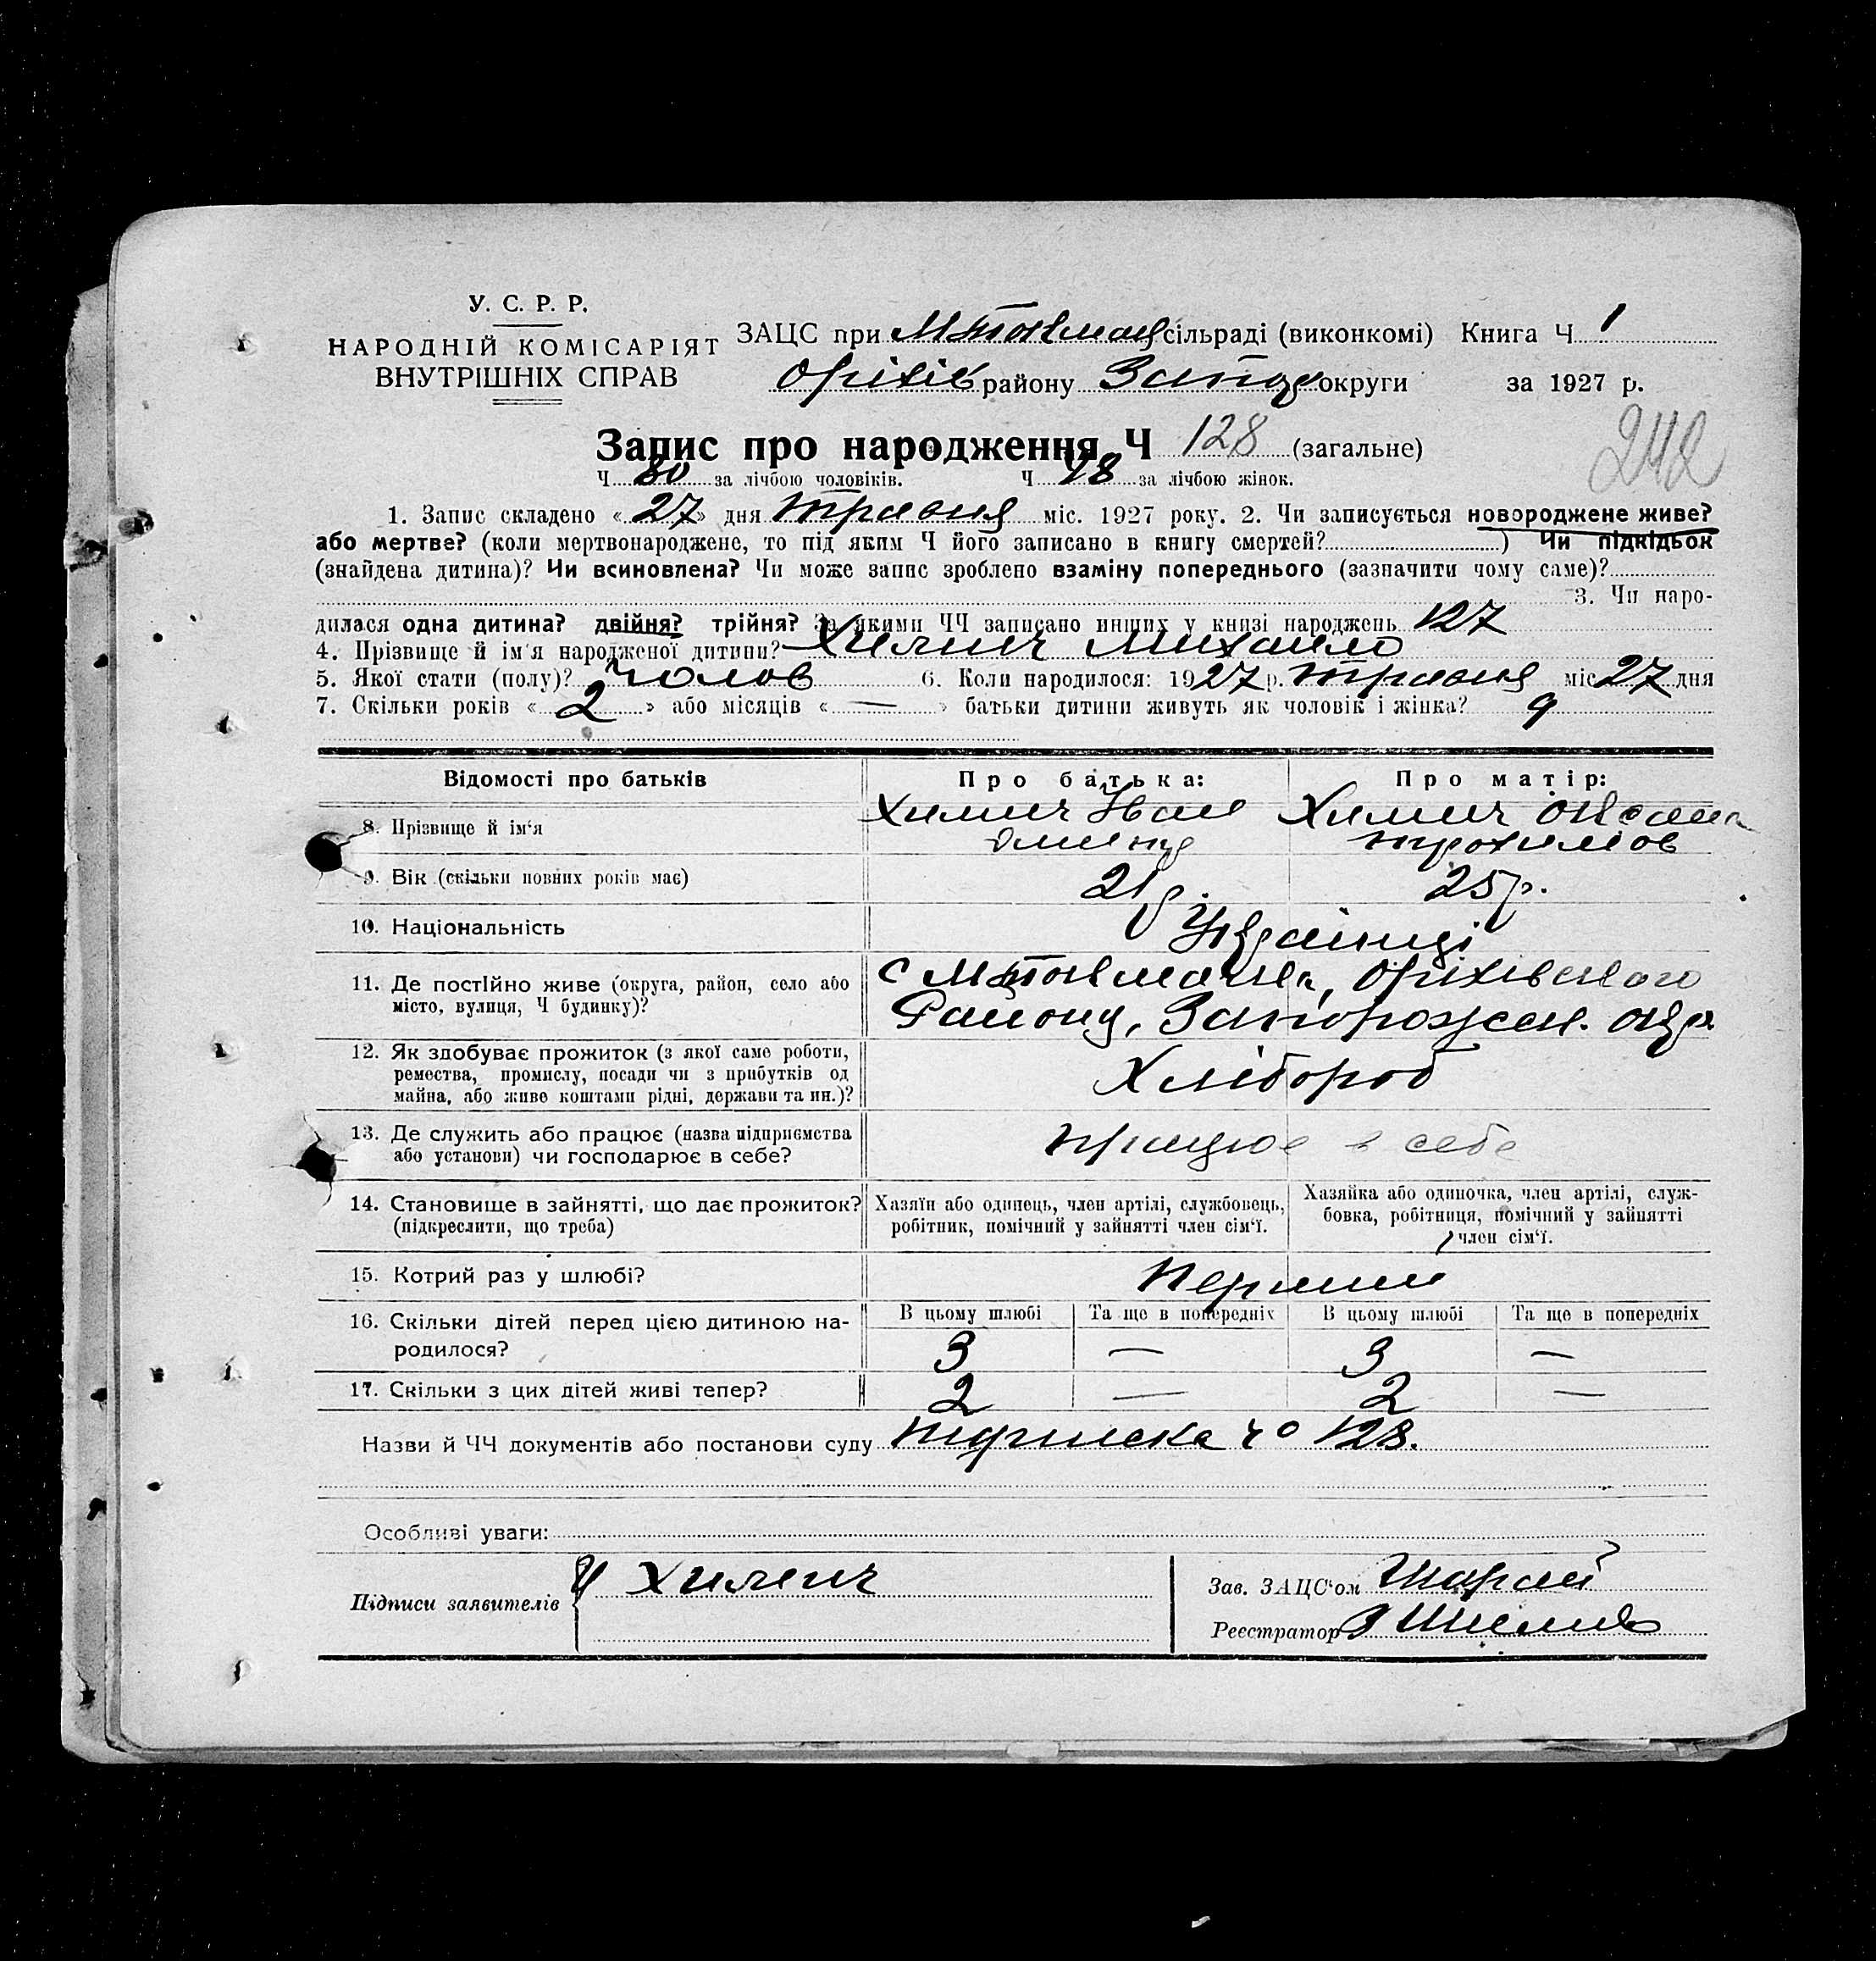 У. С. Р. Р.
НАРОДНІЙ КОМІСАРІЯТ
ВНУТРІШНІХ СПРАВ
ЗАЦС при М Токмац сільраді (виконкомі) Книга Ч 1
Оріхів району Запоро округи за 1927 р.
242
Запис про народження Ч 128 (загальне)
Ч 80 за лічбою чоловіків. Ч 48 за лічбою жінок.
1. Запис складено « 27 » дня травня міс. 1927 року. 2. Чи записується новороджене живе?
або мертве? (коли мертвонароджене, то під яким Ч його записано в книгу смертей? ) Чи підкідьок
(знайдена дитина)? Чи всиновлена? Чи може запис зроблено взаміну попереднього (зазначити чому саме)?
3. Чи наро-
дилася одна дитина? двійня? трійня? За якими ЧЧ записано инших у книзі народжень 127
4. Прізвище й ім'я народженої дитини? Химич Михайло
5. Якої стати (полу)? чолов 6. Коли народилося: 1927 р. травня міс 27 дня
7. Скільки років « 2 » або місяців « — » батьки дитини живуть як чоловік і жінка? 9
Відомості про батьків Про батька: Про матір:
8. Прізвище й ім‘я Химич Іван Химич Оксана
Трохимов
9. Вік (скільки повних років має) 21 р. 25 р.
10. Національність Українці
11. Де постійно живе (округа, район, село або с М Токмачка, Оріхівского
місто, вулиця, Ч будинку)? Району, Запорожськ. окр.
12. Як здобуває прожиток (з якої саме роботи,
ремества, промислу, посади чи з прибутків од
майна, або живе коштами рідні, держави та ин.)? Хлібороб
13. Де служить або працює (назва підприємства
або установи) чи господарює в себе? працює в себе
14. Становище в зайнятті, що дає прожиток?
(підкреслити, що треба)
Хазяїн або одинець, член артілі, службовець,
робітник, помічний у зайнятті член сім‘ї.
Хазяйка або одиночка, член артілі, служ-
бовка, робітниця, помічний у зайнятті
член сім‘ї.
15. Котрий раз у шлюбі? Перший
В цьому шлюбі Та ще в попередніх В цьому шлюбі Та ще в попередніх
16. Скільки дітей перед цією дитиною на-
родилося? 3 — 3 —
17. Скільки з цих дітей живі тепер? 2 — 2 —
Назви й ЧЧ документів або постанови суду підписка Ч 128.
Особливі уваги:
Підписи заявителів Химич
Зав. ЗАЦС‘ом
Реєстратор